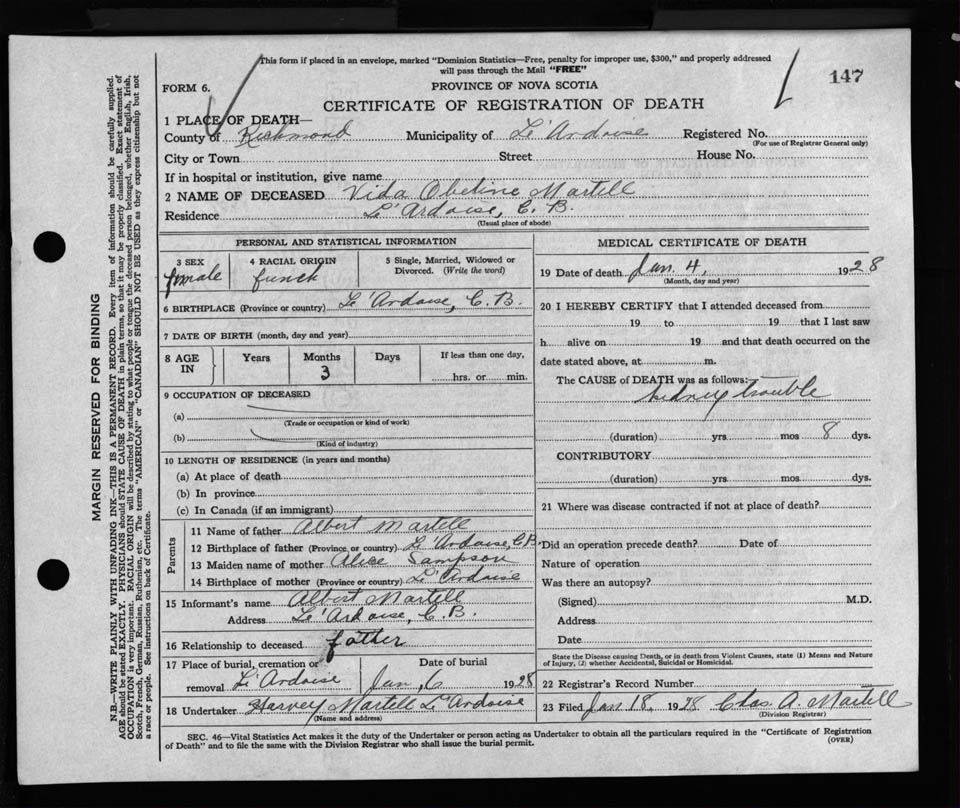 This form if placed in an envelope, marked "Dominion Statistics—Free, penalty for improper use, $300," and properly addressed
will pass through the Mail "FREE"
147
FORM 6.
PROVINCE OF NOVA SCOTIA
CERTIFICATE OF REGISTRATION OF DEATH
1 PLACE OF DEATH—
County of Richmond Municipality of L'Ardoise Registered No.
(For use of Registrar General only)
City or Town Street House No.
If in hospital or institution, give name
2 NAME OF DECEASED Vida Obeline Martell
Residence L'Ardoise, C. B.
(Usual place of abode)
PERSONAL AND STATISTICAL INFORMATION
3 SEX 4 RACIAL ORIGIN 5 Single, Married, Widowed or
Divorced. (Write the word)
female
6 BIRTHPLACE (Province or country) L'Ardoise, C. B.
7 DATE OF BIRTH (month, day and year)
8 AGE IN Years Months Days If less than one day,
3 hrs. or min.
9 OCCUPATION OF DECEASED
(a)
(Trade or occupation or kind of work)
(b)
(Kind of industry)
10 LENGTH OF RESIDENCE (in years and months)
(a) At place of death
(b) In province
(c) In Canada (if an immigrant)
Parents
11 Name of father Albert Martell
12 Birthplace of father (Province or country) L'Ardoise, C B
13 Maiden name of mother Alice Sampson
14 Birthplace of mother (Province or country) L'Ardoise
15 Informant's name Albert Martell
Address L'Ardoise, C. B.
16 Relationship to deceased father
17 Place of burial, cremation or Date of burial
removal L'Ardoise Jan, 6 1928
18 Undertaker Harvey Martell L'Ardoise
(Name and address)
MEDICAL CERTIFICATE OF DEATH
19 Date of death Jan. 4, 1928
(Month, day and year)
20 I HEREBY CERTIFY that I attended deceased from
19 to 19 that I last saw
h alive on 19 and that death occurred on the
date stated above, at m.
The CAUSE of DEATH was as follows:
kidney trouble
(duration) yrs. mos 8 dys.
CONTRIBUTORY
(duration) yrs. mos. dys.
21 Where was disease contracted if not at place of death?
Did an operation precede death? Date of
Nature of operation
Was there an autopsy?
(Signed) M.D.
Address
Date
State the Disease causing Death, or in death from Violent Causes, state (1) Means and Nature
of Injury, (2) whether Accidental, Suicidal or Homicidal.
22 Registrar's Record Number
23 Filed Jan 18, 1928 Chas A. Martell
(Division Registrar)
SEC. 46—Vital Statistics Act makes it the duty of the Undertaker or person acting as Undertaker to obtain all the particulars required in the "Certificate of Registration
of Death" and to file the same with the Division Registrar who shall issue the burial permit.
(OVER)
MARGIN RESERVED FOR BINDING
N.B.—WRITE PLAINLY WITH UNFADING INK—THIS IS A PERMANENT RECORD. Every item of information should be carefully supplied.
AGE should be stated EXACTLY. PHYSICIANS should STATE CAUSE OF DEATH in plain terms, so that it may be properly classified. Exact statement of
OCCUPATION is very important. RACIAL ORIGIN will be described by stating to what people or tongue the deceased person belonged, whether English, Irish,
Scotch, French, German, Russian, Ruthenian, etc. The terms "AMERICAN" or "CANADIAN" SHOULD NOT BE USED as they express citizenship but not
a race or people. See instructions on back of Certificate.